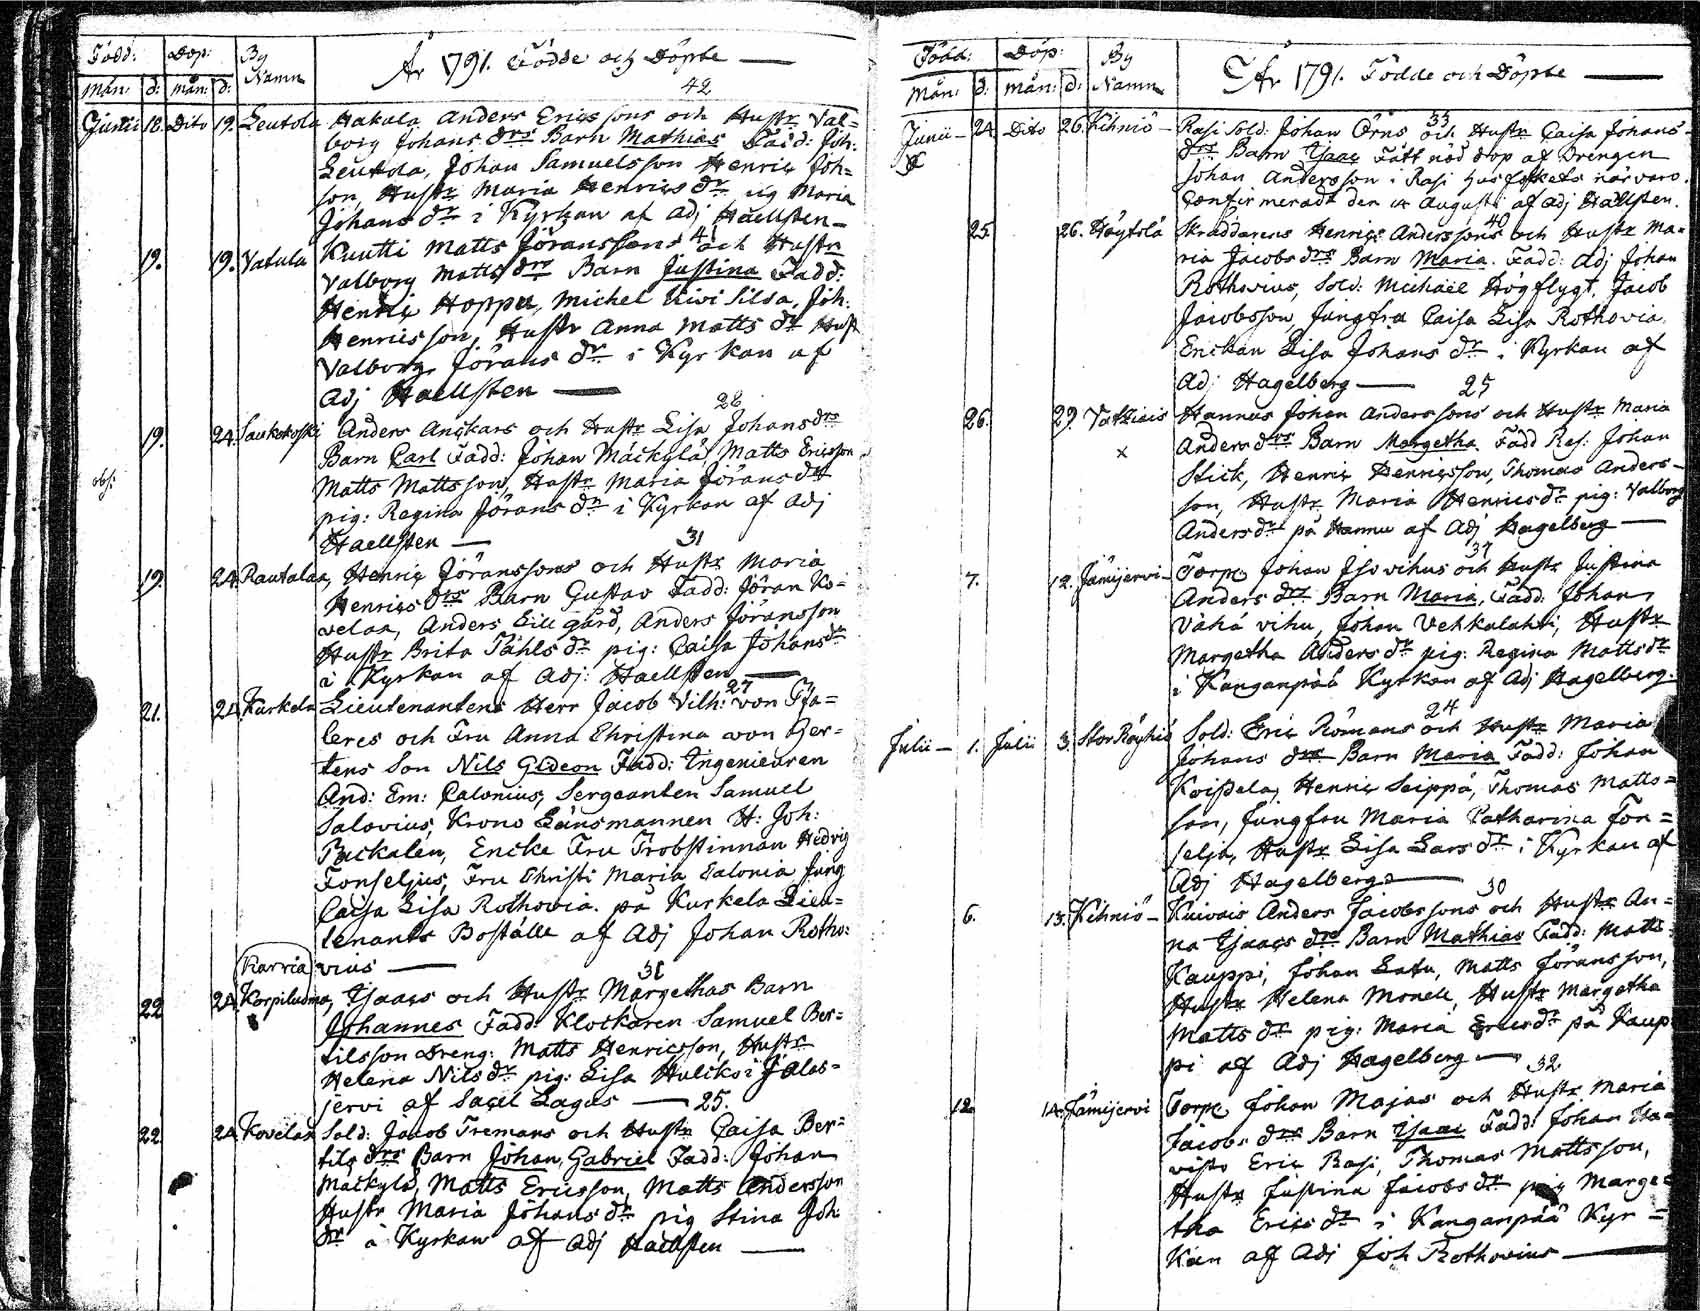 Född: Döp: By Namn År 1791. Födde och Döpte —
Mån: d: mån: d: 42
Junii 18. Dito 19. Leutola Hakala Anders Ericssons och Hustr Val=
borg Johans drs Barn Mathias Fadd: Joh:
Leutola, Johan Samuelsson Henric Joh=
son, Hustr Maria Henrics dr Maria
Johans dr i Kyrkan af Adj Haellsten —
19. 19. Vatula Kuutti Matts Jöranssons och Hustr
Valborg Matts drs Barn Justina Fadd:
Henric Hoppu, Michel Kivi Silda, Joh:
Henricsson, Hustr Anna Matts dr Hust
Valborg Jörans dr i Kyrkan af
Adj Haellsten —
28
19. 24. Saukokoski Anders Anckars och Hustr Lisa Johans drs
Barn Carl Fadd: Johan Mäckylä, Matts Ericsson
obs: Matts Mattsson, Hustr Maria Jörans dr
pig: Regina Jörans dr i Kyrkan af Adj
Haellsten —
31
19. 24. Rautalaa, Henric Jöranssons och Hustr Maria
Henrics drs Barn Gustav Fadd: Jöran Ko-
velaa, Anders Lillgård, Anders Jöransson
Hustr Brita Påhls dr pig: Caisa Johans dr
i Kyrkan af Adj: Haellsten —
27
21. 21. Kurkela Lieutenantens Herr Jacob Vilh: von
leres och Fru Anna Christina von Ger=
tens Son Nils Gideon Fadd: Ingenieuren
And: Em: Calonius, Sergeanten Samuel
Salovius, Krono Länsmannen H: Joh:
Packalen, Encke Fru Probstinnan Hedvig
Fonseljus, Fru Christi Maria Calonia Jung
Caisa Lisa Rothovia. på Kurkela Lieu=
tenants Boställe af Adj Johan Rotho:
Karvia vius —
31
22 24 Korpiludma, Isaacs och Hustr Margethas Barn
Johannes Fadd: Klockaren Samuel Ber=
tilsson Dreng: Matts Henricsson, Hustr
Helena Nils dr pig: Lisa Hulcko i Jalas=
jervi af Sacell Lagus — 25.
22. 24 Kovelaa Sold: Jacob Tremans och Hustr Caisa Ber=
tils drs Barn Johan Gabriel Fadd: Johan
Mäckylä, Matts Ericsson, Matts Andersson
Hustr Maria Johans dr pig Stina Joh
dr i Kyrkan af Adj Haellsten —
Född: Döp: By Namn År 1791. Födde och Döpte —
Mån: d: mån: d:
33
Junii — 24. Dito 26. Kihniö — Rasi Sold: Johan Örns och Hustr Caisa Johans
drs Barn Isaac Fått nöd dop af Drengen
Johan Andersson i Rasi husfolkets närvaro.
Confirmeradt den Augusti af Adj Hällsten.
40
25. 26. Höytölä Skräddarens Henrics Anderssons och Hustr Ma=
ria Jacobs drs Barn Maria. Fadd: Adj Johan
Rothovius, Sold: Michaël Högflygt, Jacob
Jacobsson Jungfru Caisa Lisa Rothovia,
Enckan Lisa Johans dr i Kyrkan af
Adj Hagelberg — 25
26. 29. Vatkicis Hannus Johan Anderssons och Hustr Maria
Anders drs Barn Margetha. Fadd Res: Johan
Stick, Henric Henricsson, Thomas Anders-
son, Hustr Maria Henrics dr pig: Valborg
Anders dr på Hannu af Adj Hagelberg —
37
7. 12. Jämijervi — Torp: Johan Isovihus och Hustr Justina
Anders drs Barn Maria, Fadd: Johan
Vähä vihu, Johan Vehkalahti, Hustr
Margetha Anders dr pig: Regina Matts dr
i Kanganpää Kyrkan af Adj Hagelberg.
24
Julii — 1. Julii 3. Stor Röyhiö Sold: Eric Römans och Hustr Maria
Johans drs Barn Maria Fadd: Johan
Koissela, Henric Seippä, Thomas Matts=
son, Jungfru Maria Catharina Fon=
selia, Hustr Lisa Lars dr i Kyrkan af
Adj Hagelberg —
30
6. 13. Kihniö — Kuivais Anders Jacobssons och Hustr An=
na Isaacs drs Barn Mathias Fadd: Matts
Kauppi, Johan Latu, Matts Jöransson,
Hustr Helena Monell, Hustr Margetha
Matts dr pig: Maria Erics dr på Kaup
pi af Adj Hagelberg —
32
12. 14. Jämijervi Torp: Johan Majas och Hustr Maria
Jacobs drs Barn Isaac Fadd: Johan Ha=
visto Eric Rasi, Thomas Mattsson,
Hustr Justina Jacobs dr pig Marge=
tha Erics dr i Kanganpää Kyr=
kan af Adj Joh Rothovius —